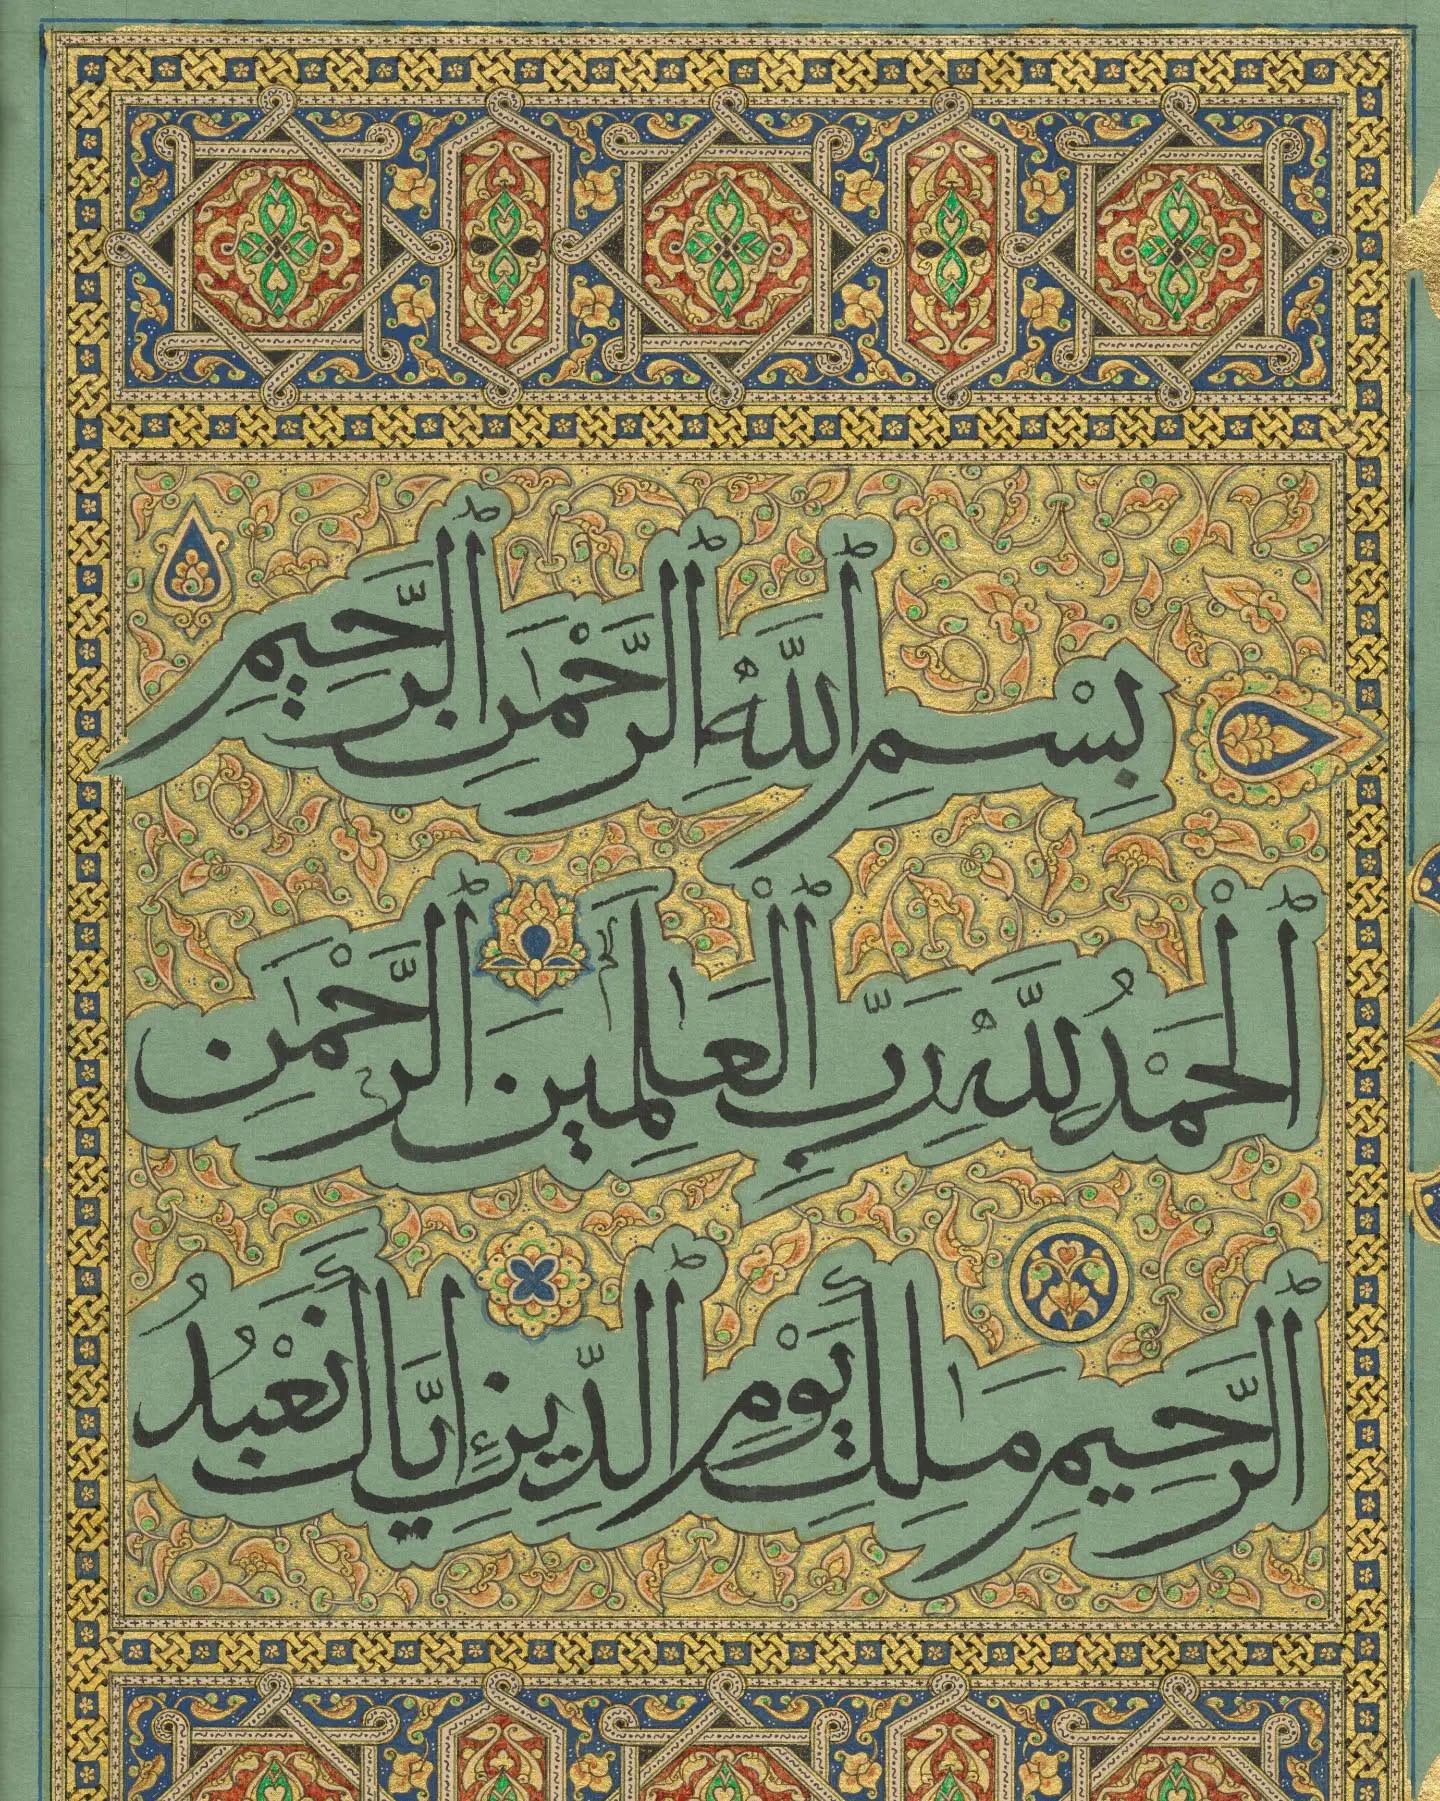 بِسْمِ ٱللَّهِ ٱلرَّحْمَٰنِ ٱلرَّحِيمِ
ٱلْحَمْدُ لِلَّهِ رَبِّ ٱلْعَالَمِينَ ٱلرَّحْمَٰنِ
ٱلرَّحِيمِ مَٰلِكِ يَوْمِ ٱلدِّينِ إِيَّاكَ نَعْبُدُ